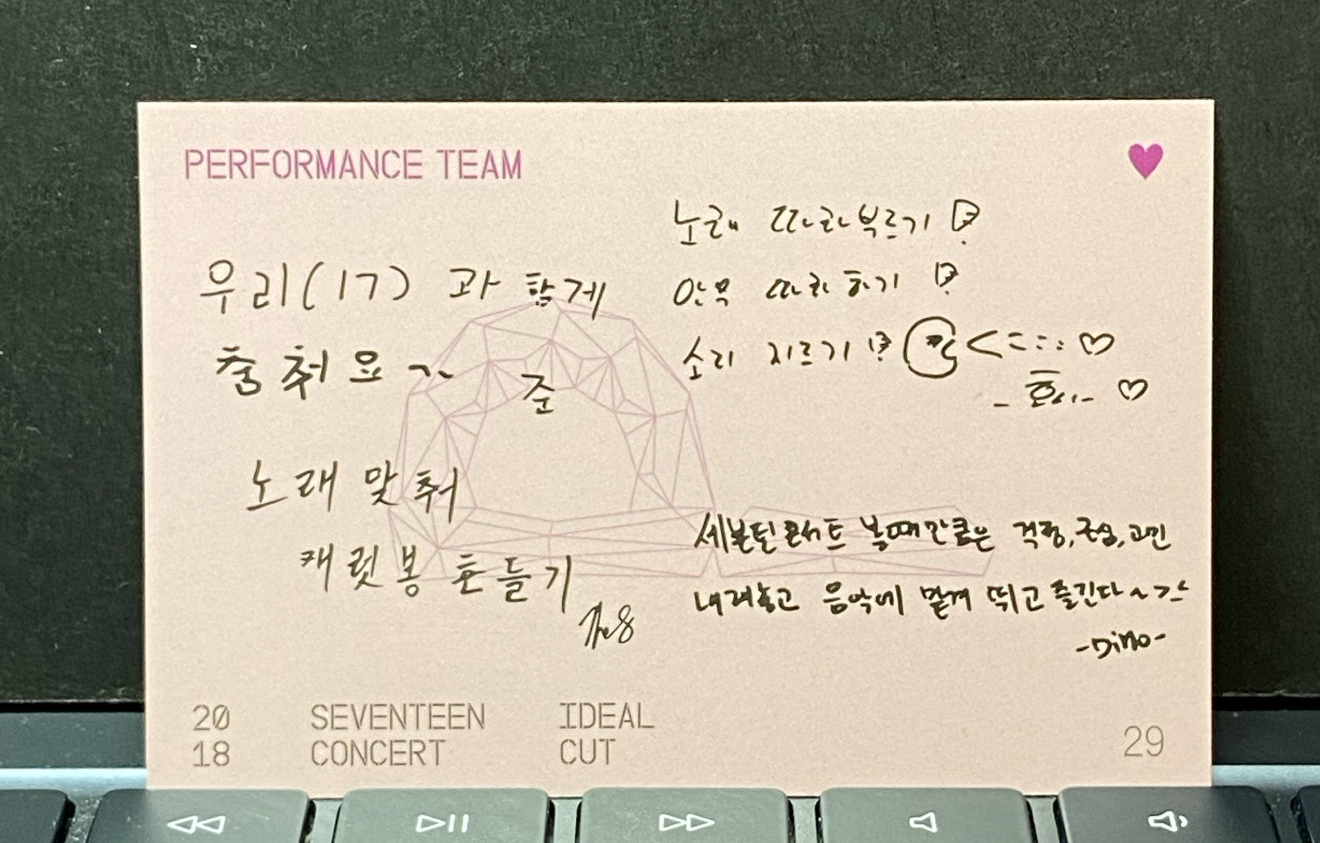 PERFORMANCE TEAM
우리(17) 과 함께
춤춰요~
준
노래 따라부르기
안무 따라하기
소리 지르기
-호시-
노래 맞춰
캐럿봉 흔들기
The8
세븐틴콘서트 볼때만큼은 걱정,근심,고민
내려놓고 음악에 맡겨 뛰고 즐긴다~
-Dino-
20 SEVENTEEN IDEAL
18 CONCERT CUT
29